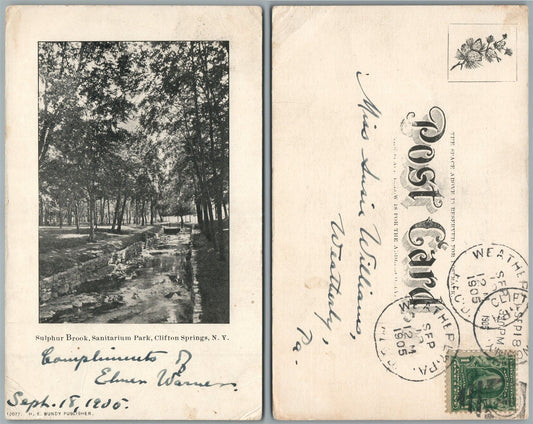 Sulphur Brook, Sanitarium Park, Clifton Springs, N. Y.
Compliments of
Elmer Warner
Sept. 18, 1905.
12077. H. E. BUNDY PUBLISHER.
Post Card
THE SPACE ABOVE IS RESERVED FOR
BELOW IS FOR THE
Miss Susie Williams,
Weatherly,
Pa.
WEATHERLY, PA.
SEP
12 M
1905
WEATHER
SEP
12
1905
SEP 18